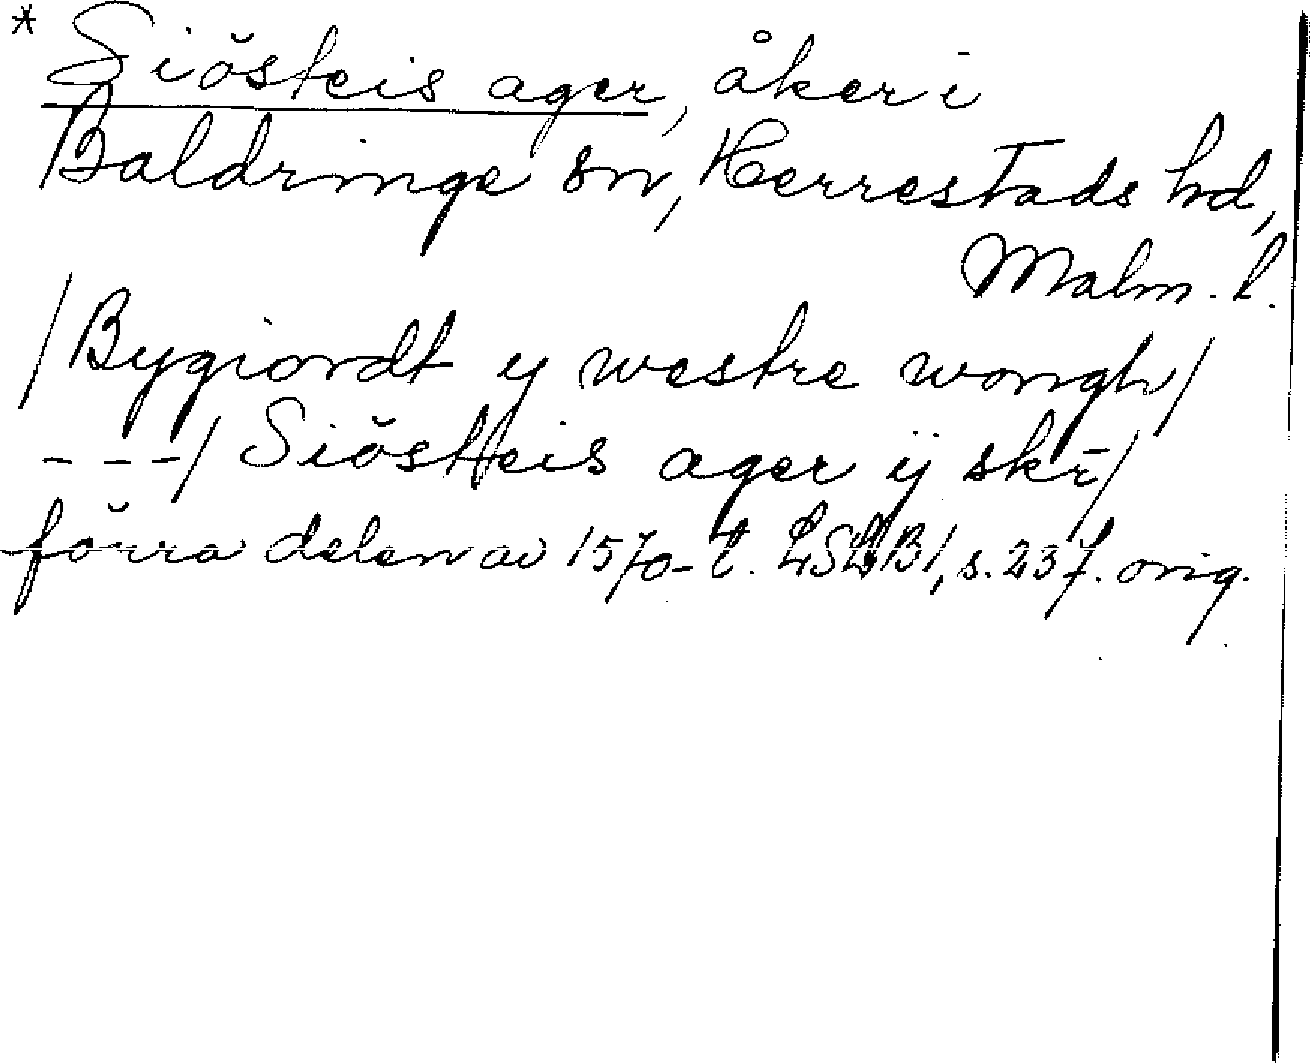 * Siösteis ager, åker i
Baldringe sn, Herrestads hd,
Malm. l.
/Bygiordt y westre wongh/
---/ Siösteis ager ij skr̄/
förra delen av 1570-t. LSLB1, s. 237. orig.